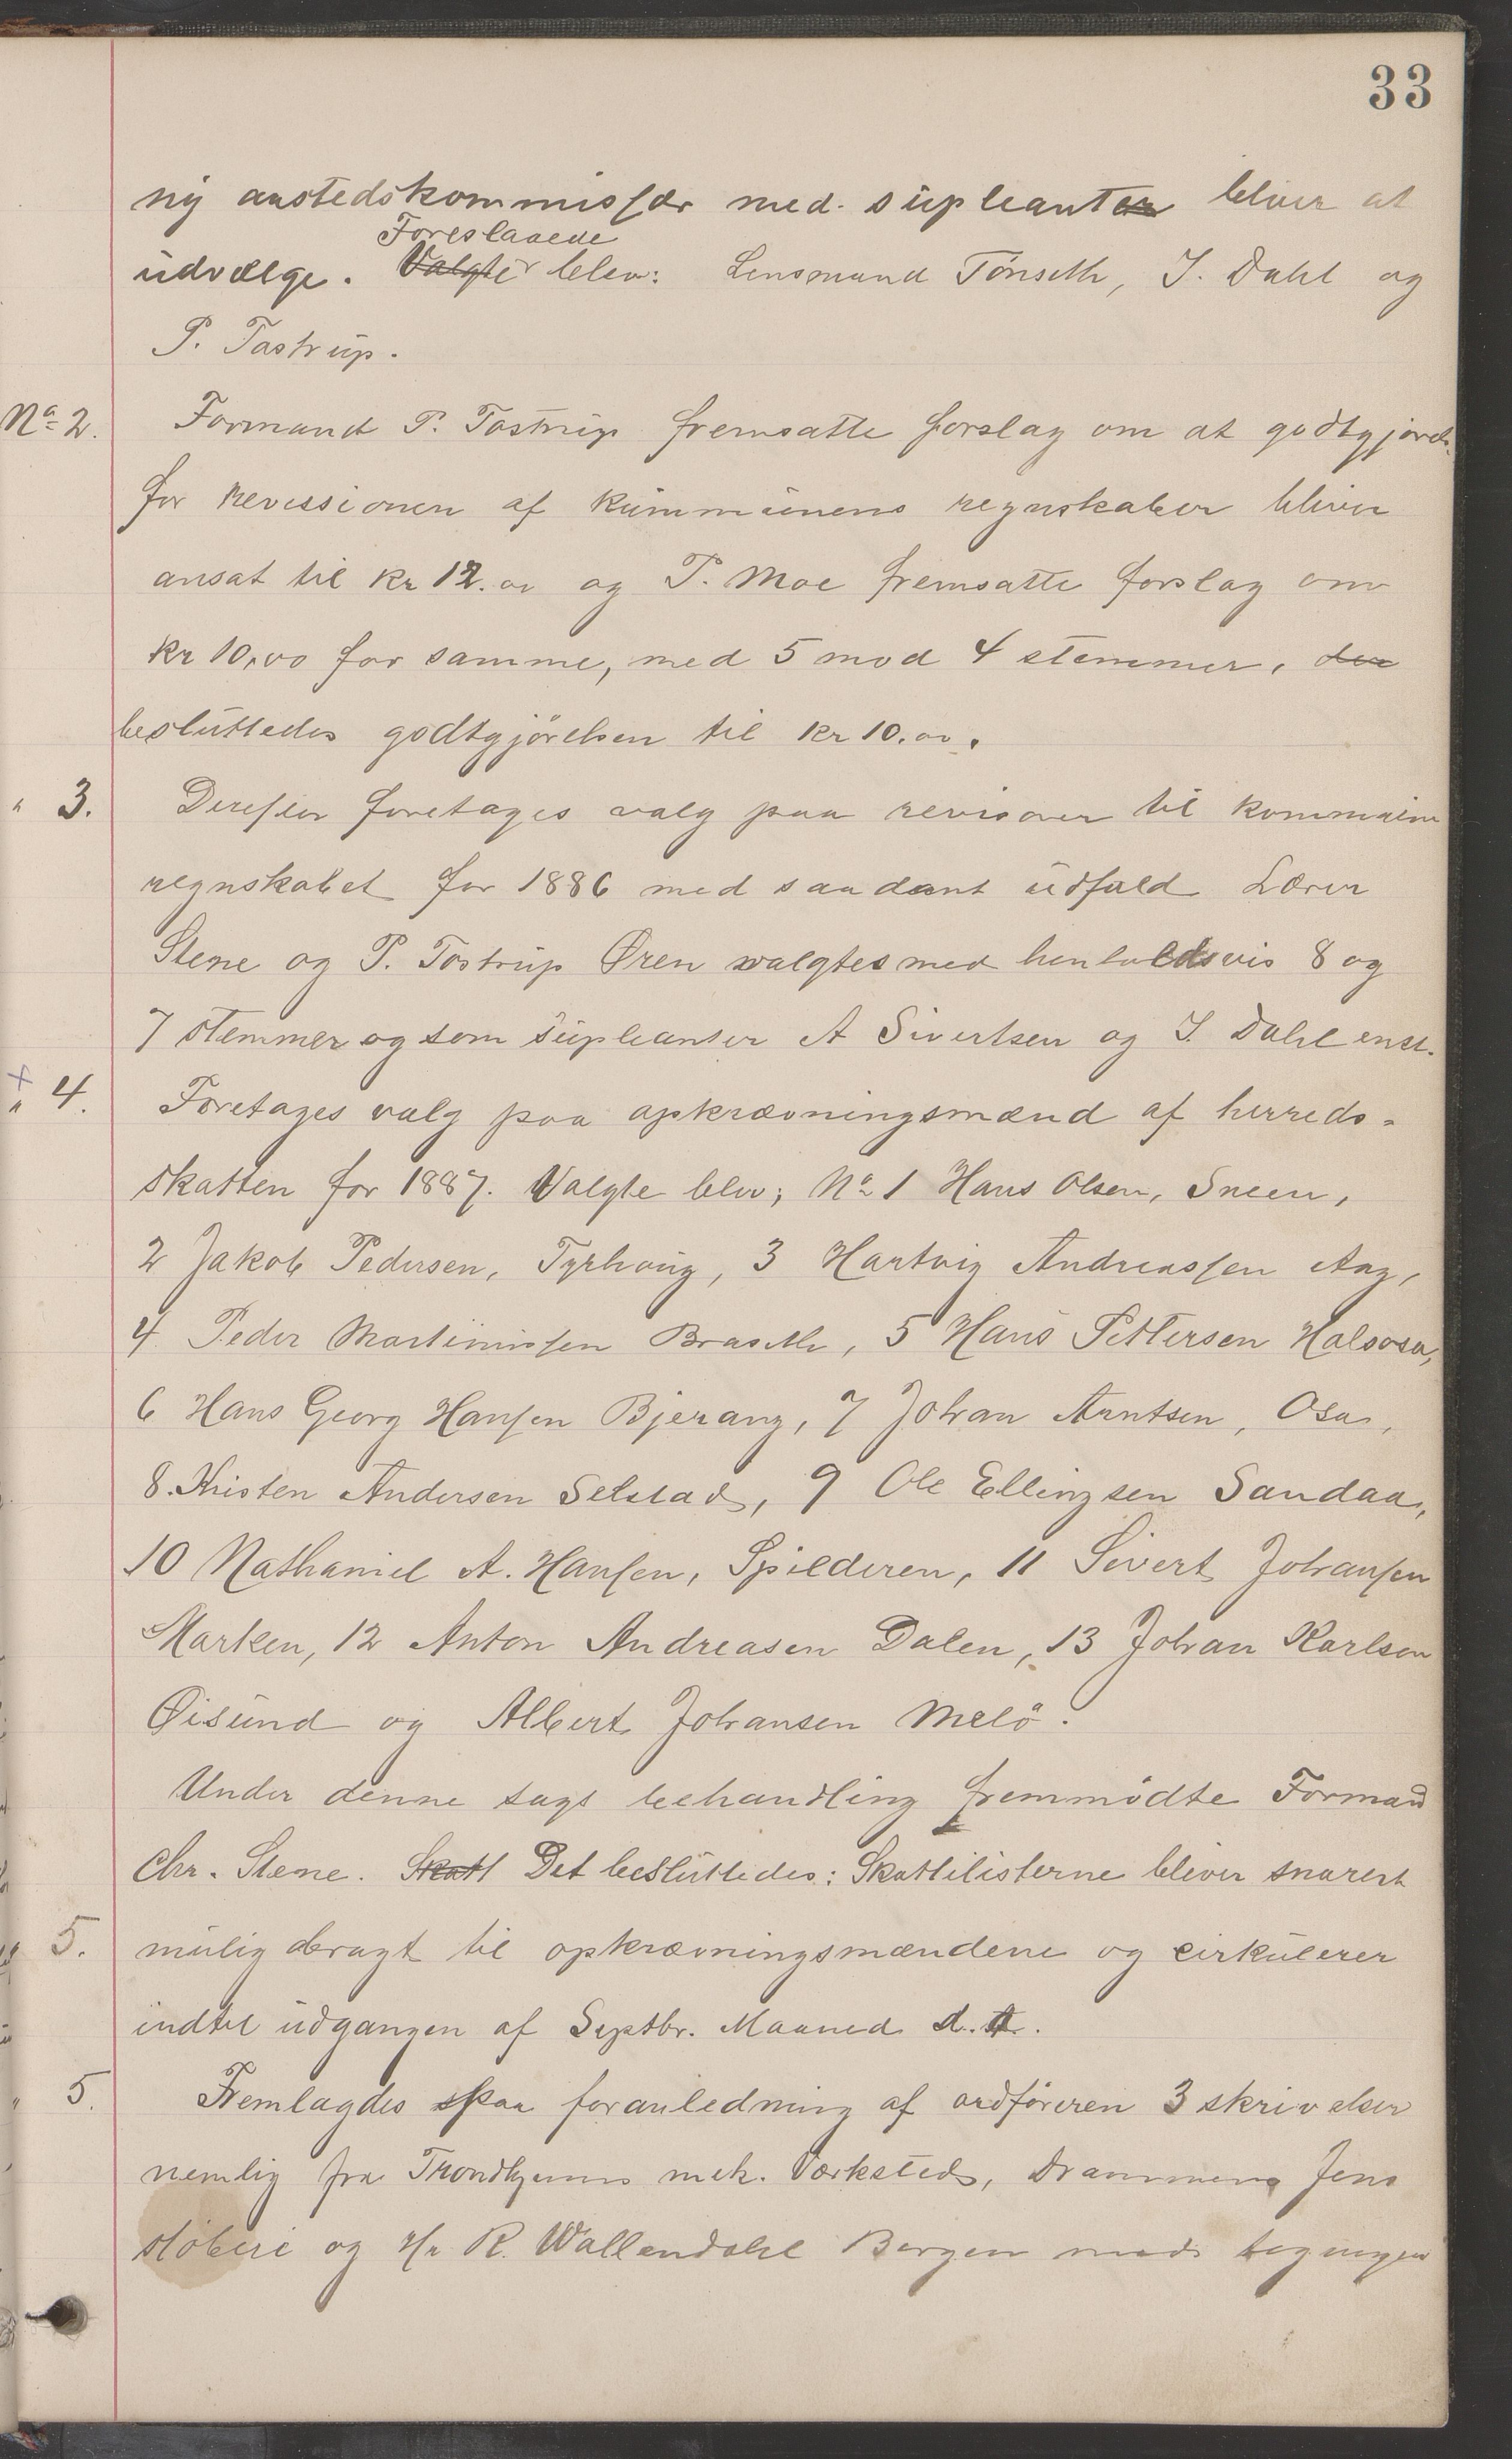 33
ny anstedskommissær med supleanter bliver at
Foreslaaede
udvælge. Valgte blev: Lensmand Tønseth, J. Dahl og
P. Tostrup.
No 2. Formand P. Tostrup fremsatte forslag om at godtgjørels.
for revissionen af kummunens regnskaber bliver
ansat til kr 12.00 og P. Moe fremsatte forslag om
kr 10,00 for samme, med 5 mod 4 stemmer, der
besluttedes godtgjörelsen til kr 10.00.
" 3. Derefter foretages valg paa revisorer til kommune
regnskabet for 1886 med saadant udfald Lærer
Stene og P. Tostrup Øren valgtes med henholdsvis 8 og
7 stemmer og som supleanter A Sivertsen og J. Dahl enst.
+
" 4. Foretages valg paa opkrævningsmænd af herreds-
skatten for 1887. Valgte blev; No 1 Hans Olsen, Sneen,
2 Jakob Pedersen, Tyrhaug, 3 Hartvig Andreassen Aag,
4 Peder Martinussen Braseth, 5 Hans Pettersen Halsosa,
6 Hans Georg Hansen Bjerang, 7 Johan Arntsen, Osa,
8. Kristen Andersen Selstad, 9 Ole Ellingsen Sandaa,
10 Nathaniel A. Hansen, Spilderen, 11 Sivert Johansen
Marken, 12 Anton Andreasen Dalen, 13 Johan Karlsen
Øisund og Albert Johansen Melö.
Under denne sags behandling fremmödte Formand
Chr. Stene. Skatt Det besluttedes: Skattelisterne bliver snarest
5. mulig bragt til opkrævningsmændene og cirkulerer
indtil udgangen af Septbr. Maaned d.A.
" 5. Fremlagdes paa foranledning af ordföreren 3 skrivelser
nemlig fra Trondhjems mek. Værksted, Drammens Jern
stöberi og Hr R. Wallendahl Bergen med tegninger